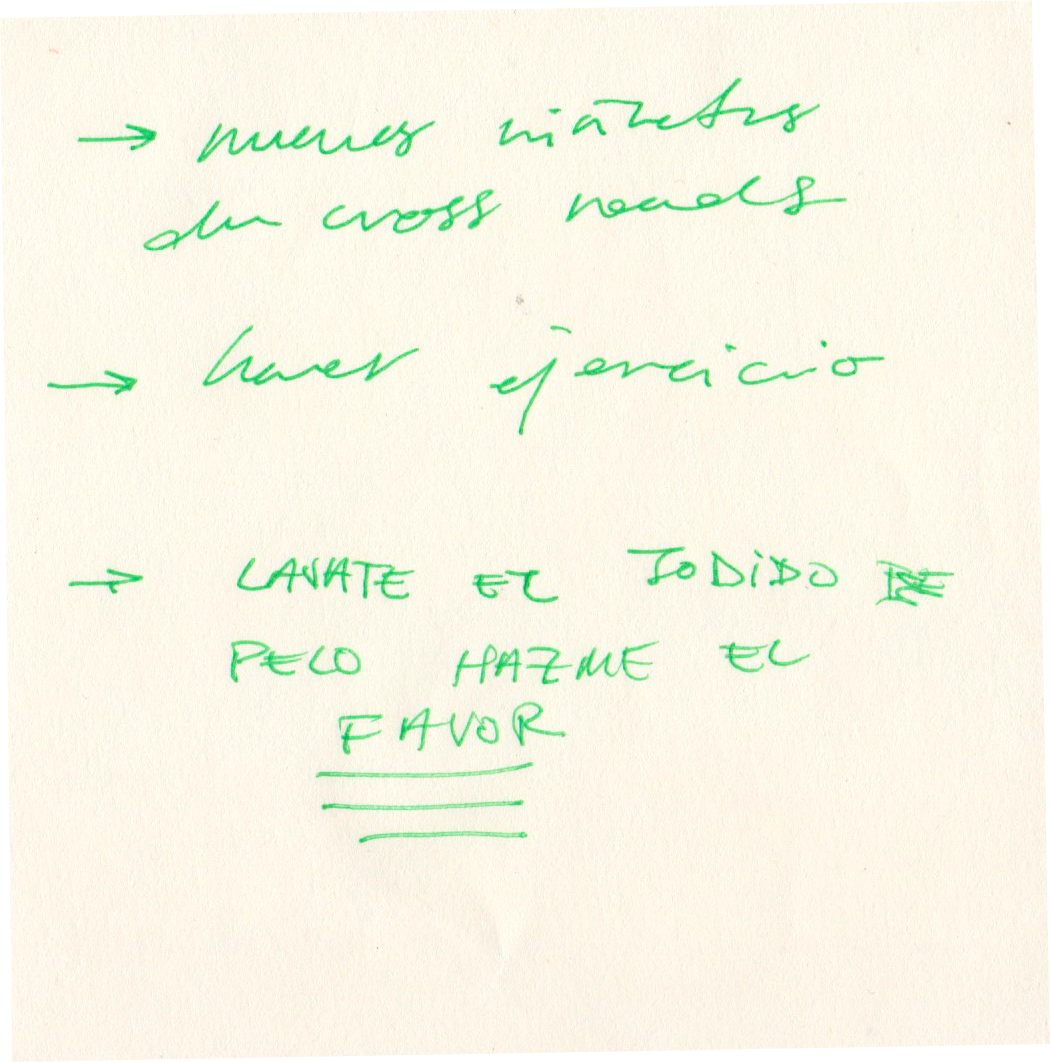 → nuevas
de cross roads
→ hacer ejercicio
→ LAVATE EL JODIDO
PELO HAZME EL
FAVOR